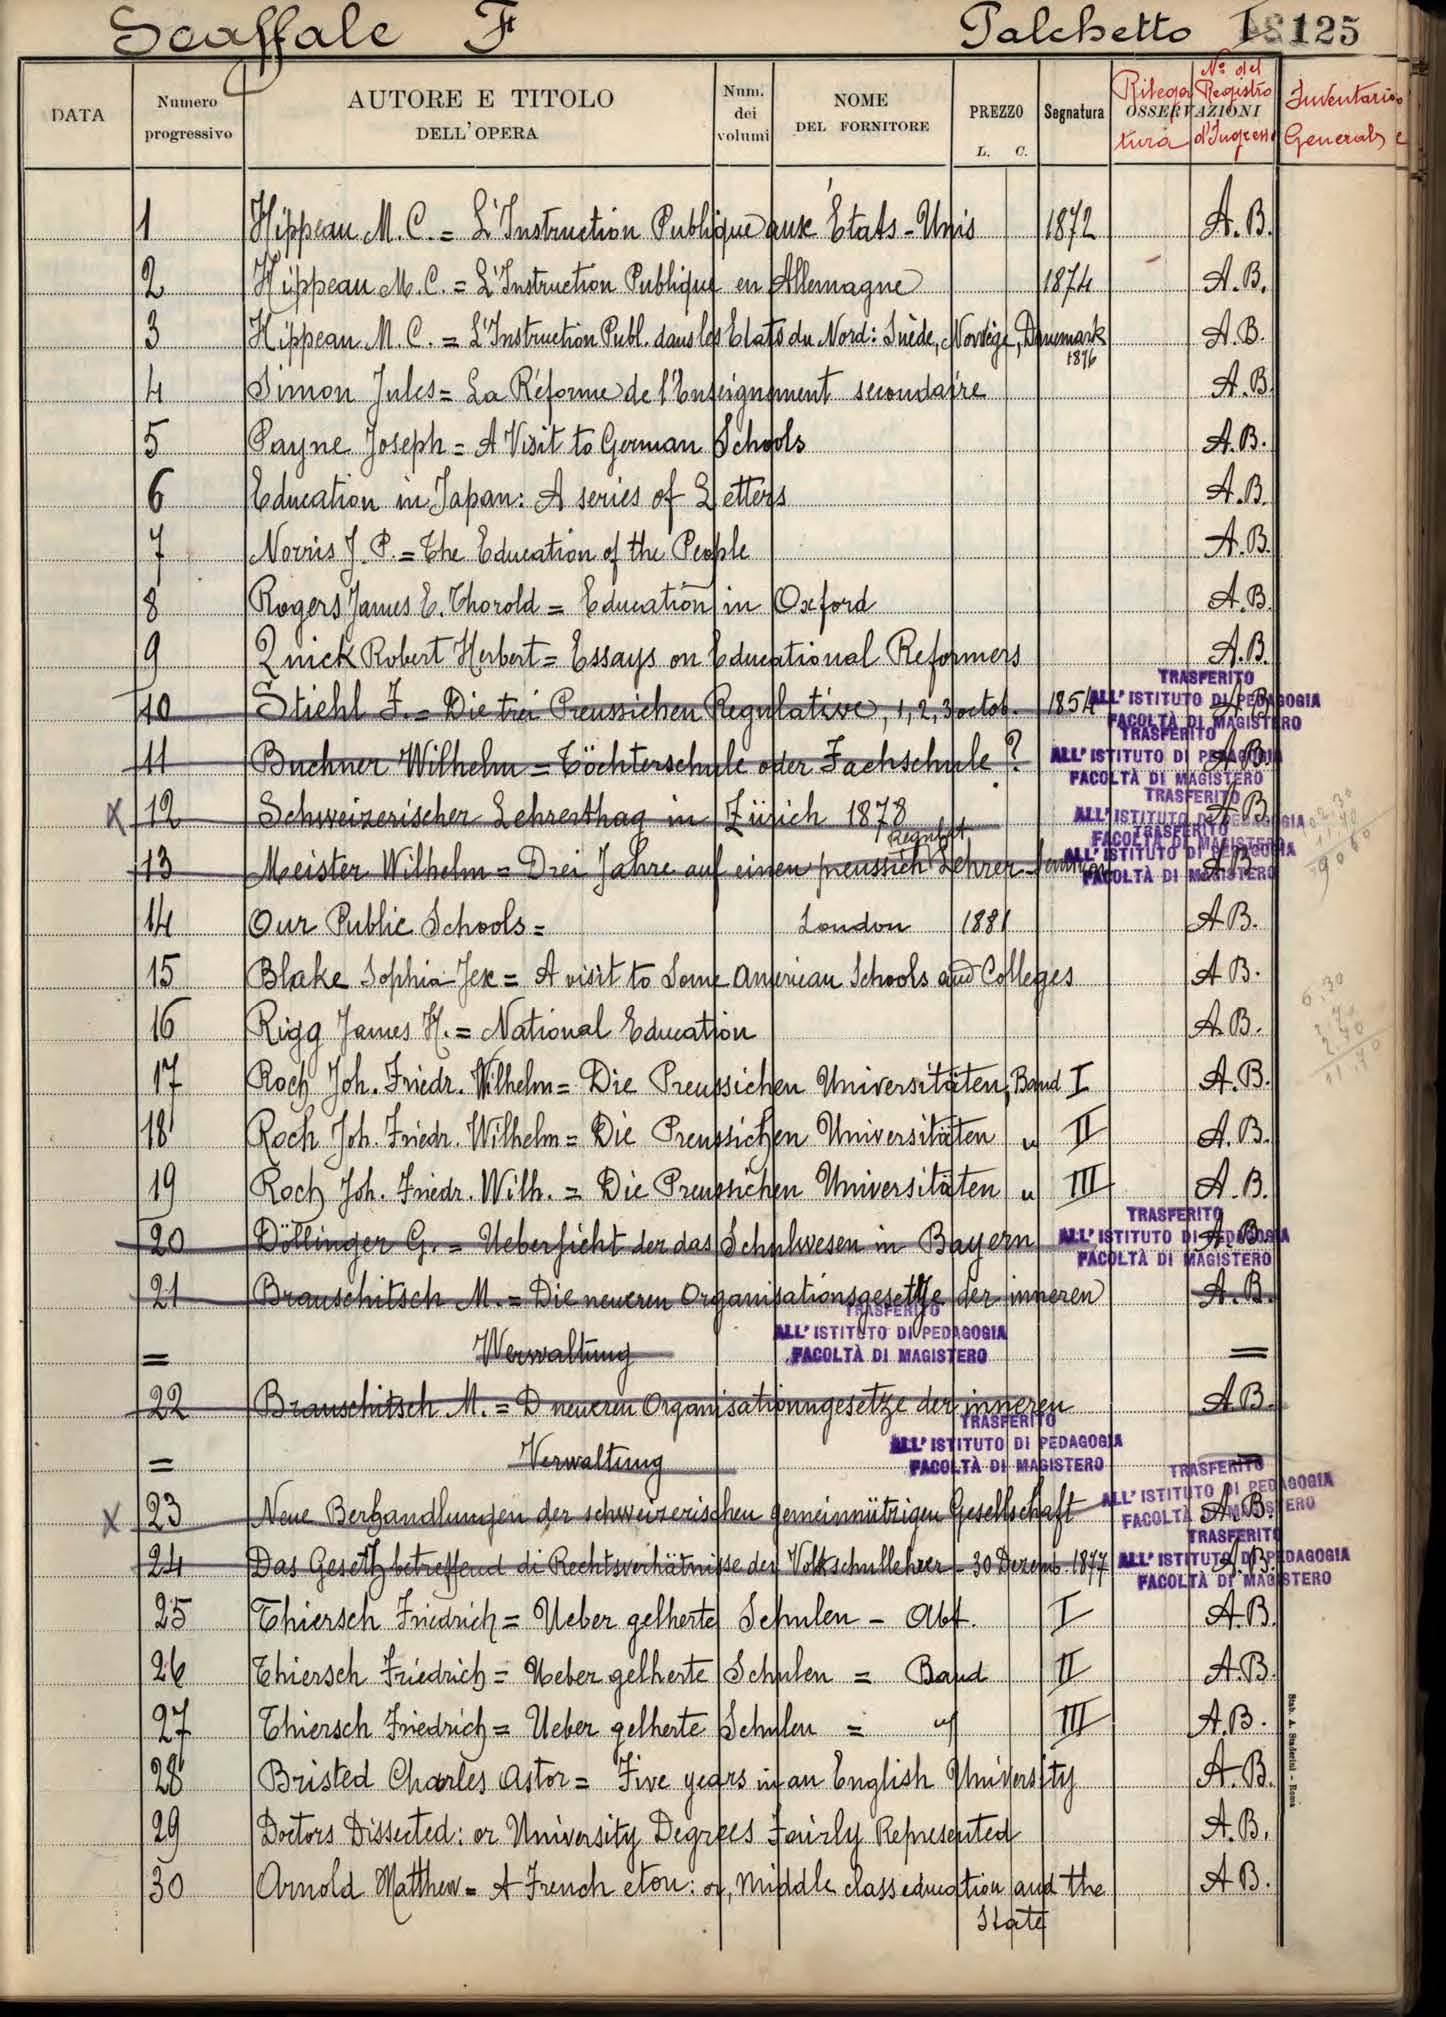 Scaffale F Palchetto I 125
DATA Numero progressivo AUTORE E TITOLO DELL'OPERA Num. dei volumi NOME DEL FORNITORE PREZZO L. C. Segnatura OSSERVAZIONI Rilegatura N° del Registro d'Ingresso Inventario Generale
1 Hippeau M. C. = L'Instruction Publique aux États-Unis 1872 A.B.
2 Hippeau M. C. = L'Instruction Publique en Allemagne 1874 A.B.
3 Hippeau M. C. = L'Instruction Publ. dans les Etats du Nord: Suède, Norvège, Danemark A.B.
1876
4 Simon Jules = La Réforme de l'Enseignement secondaire A.B.
5 Payne Joseph = A Visit to German Schools A.B.
6 Education in Japan: A series of Letters A.B.
7 Norris J. P. = The Education of the People A.B.
8 Rogers James E. Thorold = Education in Oxford A.B.
9 Quick Robert Herbert = Essays on Educational Reformers A.B.
TRASFERITO
10 Stiehl F. = Die trei Preussichen Regulative, 1, 2, 3 octob. 1854 ALL'ISTITUTO DI PEDAGOGIA A.B.
FACOLTÀ DI MAGISTERO
TRASFERITO
11 Buchner Wilhelm = Töchterschule oder Fachschule? ALL'ISTITUTO DI PEDAGOGIA A.B.
FACOLTÀ DI MAGISTERO
TRASFERITO
X 12 Schweizerischer Lehrerthag in Zürich 1878 ALL'ISTITUTO DI PEDAGOGIA A.B.
FACOLTÀ DI MAGISTERO
TRASFERITO
13 Meister Wilhelm = Drei Jahre auf einen preussich Lehrer ALL'ISTITUTO DI PEDAGOGIA A.B.
FACOLTÀ DI MAGISTERO
14 Our Public Schools = London 1881 A.B.
15 Blake Sophia Jex = A visit to Some American Schools and Colleges A.B.
16 Rigg James H. = National Education A.B.
17 Koch Joh. Friedr. Wilhelm = Die Preussichen Universitäten, Band I A.B.
18 Koch Joh. Friedr. Wilhelm = Die Preussichen Universitäten " II A.B.
19 Koch Joh. Friedr. Wilh. = Die Preussichen Universitäten " III A.B.
TRASFERITO
20 Döllinger G. = Uebersicht der das Schulwesen in Bayern ALL'ISTITUTO DI PEDAGOGIA A.B.
FACOLTÀ DI MAGISTERO
21 Brauschitsch M. = Die neueren Organisationsgesetze der inneren A.B.
TRASFERITO
ALL'ISTITUTO DI PEDAGOGIA
= Werwaltung FACOLTÀ DI MAGISTERO =
22 Brauschitsch M. = D neueren Organisationngesetze der inneren A.B.
TRASFERITO
ALL'ISTITUTO DI PEDAGOGIA
= Verwaltung FACOLTÀ DI MAGISTERO =
TRASFERITO
ALL'ISTITUTO DI PEDAGOGIA
X 23 Neue Berhandlungen der schweizerischen gemeinnützigen Gesellschaft FACOLTÀ DI MAGISTERO A.B.
TRASFERITO
24 Das Gesetz betreffend di Rechtsverhätnisse der Volkschullehrer - 30 Dezemb. 1877 ALL'ISTITUTO DI PEDAGOGIA A.B.
FACOLTÀ DI MAGISTERO
25 Thiersch Friedrich = Ueber gelherte Schulen - Abt. I A.B.
26 Thiersch Friedrich = Ueber gelherte Schulen = Band II A.B.
27 Thiersch Friedrich = Ueber gelherte Schulen = " III A.B.
28 Bristed Charles Astor = Five years in an English University A.B.
29 Doctors Dissected: or University Degrees Fairly Represented A.B.
30 Arnold Matthew = A French eton: or, Middle class education and the A.B.
State
Stab. A. Staderini - Roma